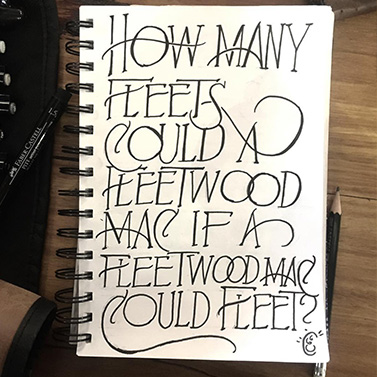 HOW MANY
FLEETS
COULD A
FLEETWOOD
MAC IF A
FLEETWOOD MAC
COULD FLEET?
FABER CASTELL